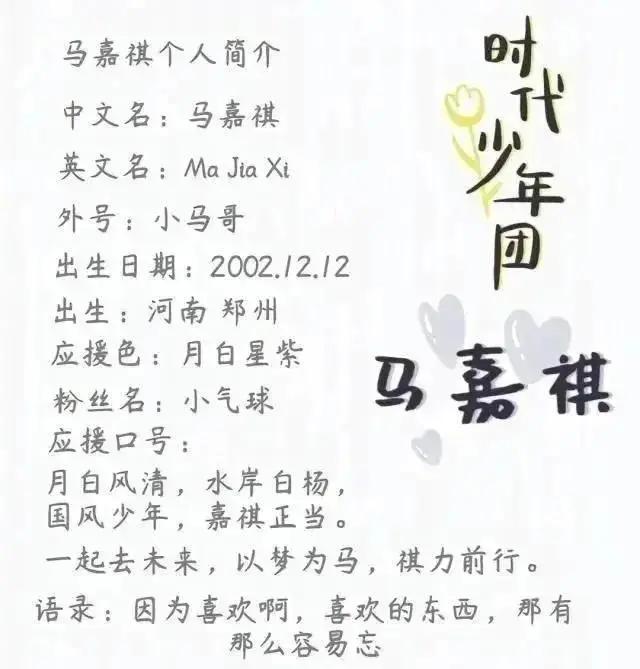 马嘉祺个人简介
中文名：马嘉祺
英文名：Ma Jia Xi
外号：小马哥
出生日期：2002.12.12
出生：河南 郑州
应援色：月白星紫
粉丝名：小气球
应援口号：
月白风清，水岸白杨，
国风少年，嘉祺正当。
一起去未来，以梦为马，祺力前行。
语录：因为喜欢啊，喜欢的东西，那有
那么容易忘
时代少年团
马嘉祺